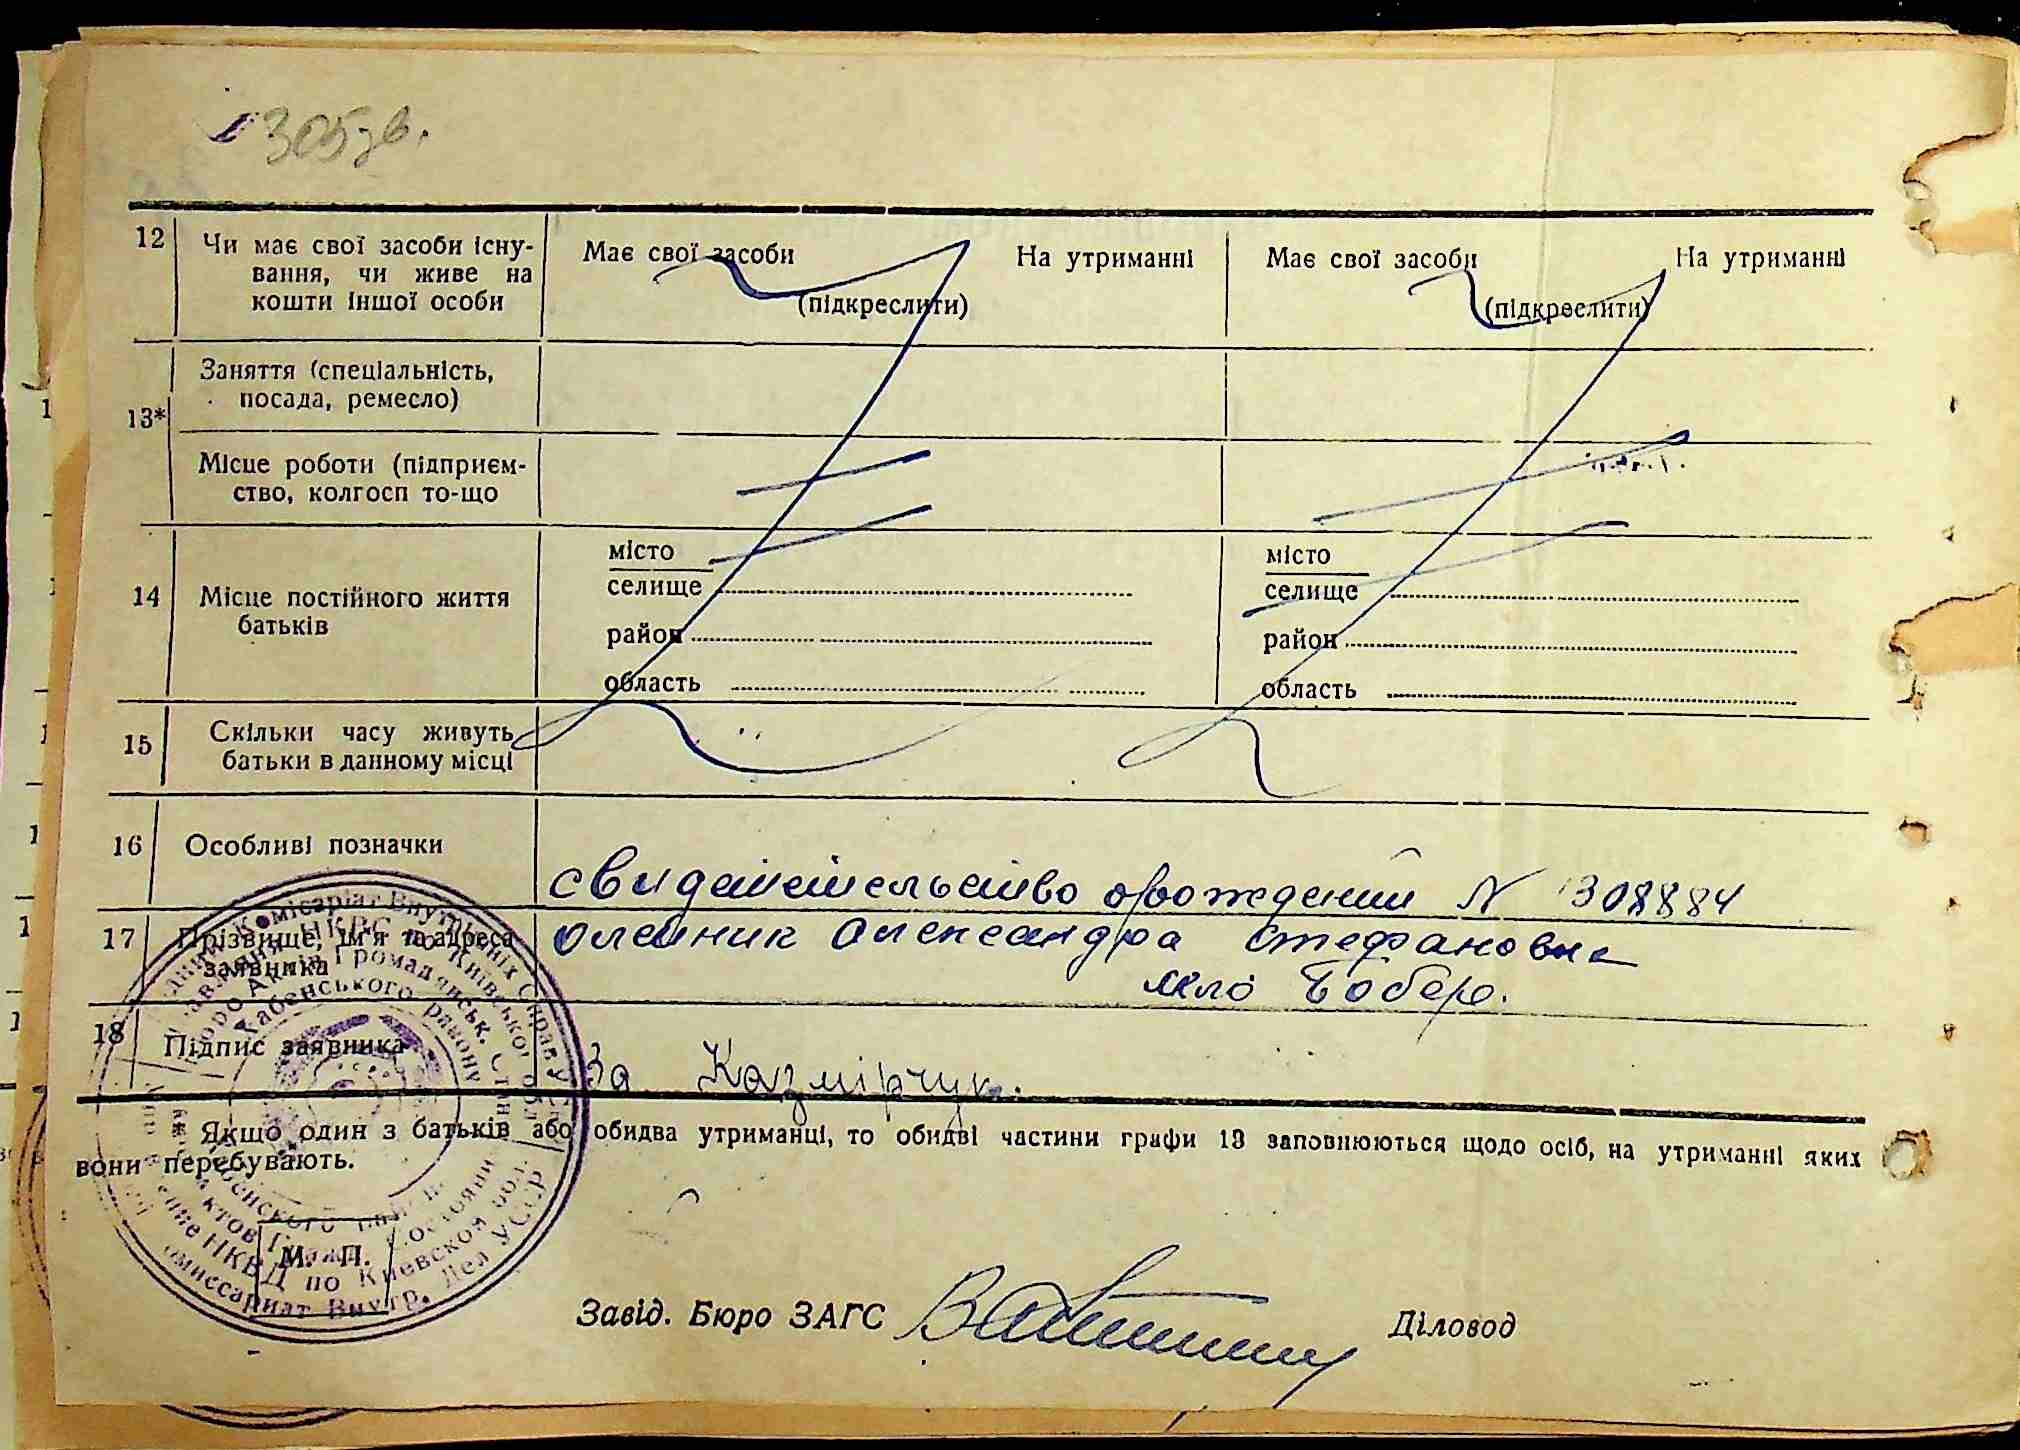 305зв.
12 Чи має свої засоби існу-
вання, чи живе на
кошти іншої особи
Має свої засоби На утриманні
(підкреслити)
Має свої засоби На утриманні
(підкреслити)
13*
Заняття (спеціальність,
посада, ремесло)
Місце роботи (підприєм-
ство, колгосп то-що
14 Місце постійного життя
батьків
місто
селище
район
область
місто
селище
район
область
15 Скільки часу живуть
батьки в данному місці
16 Особливі позначки
свидетельство о рождении N 308884
17 Прізвище, ім'я та адреса
заявника
Олейник Александра Стефановна
село Бобер.
18 Підпис заявника
За Казмірчук.
Якщо один з батьків або обидва утриманці, то обидві частини графи 13 заповнюються щодо осіб, на утриманні яких
вони перебувають.
М. П.
Завід. Бюро ЗАГС
Діловод
Комісаріат Внутрішніх Справ
НКВС по Київській обл.
Бюро Актів Громадянськ. Стан
Хабенського району
Актов Гражд. Состояния
НКВД по Киевской обл.
Комиссариат Внутр. Дел УССР